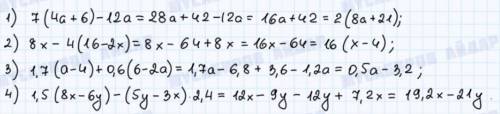 1) 7(4a+6)-12a=28a+42-12a=16a+42=2(8a+21);
2) 8x-4(16-2x)=8x-64+8x=16x-64=16(x-4);
3) 1,7(a-4)+0,6(6-2a)=1,7a-6,8+3,6-1,2a=0,5a-3,2;
4) 1,5(8x-6y)-(5y-3x)·2,4=12x-9y-12y+7,2x=19,2x-21y